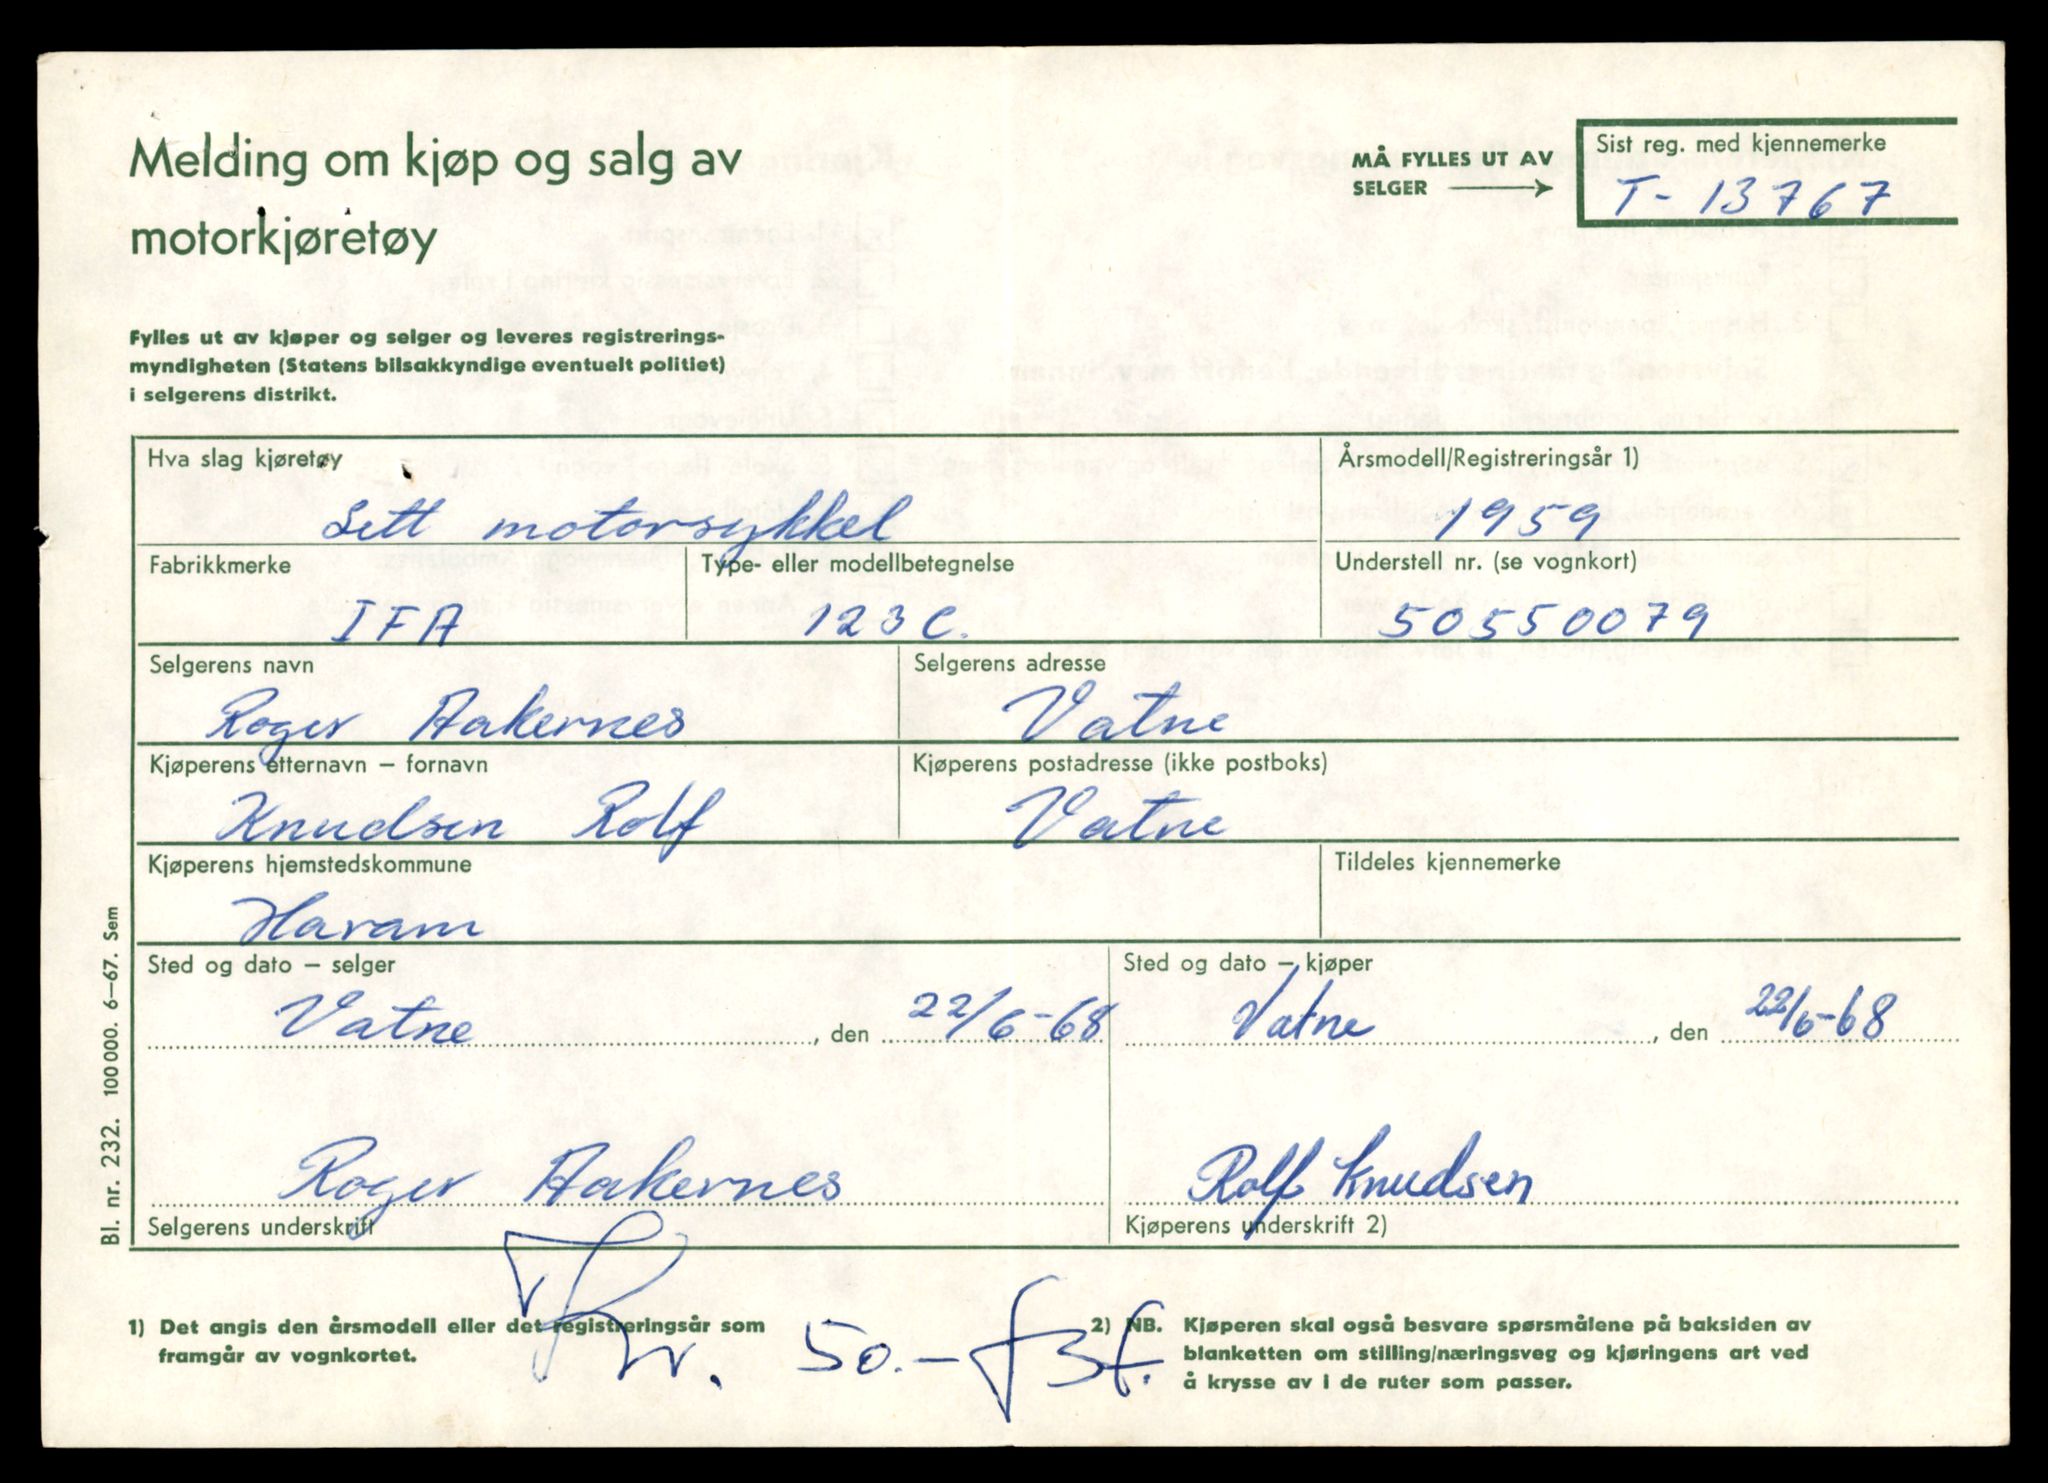 Melding om kjøp og salg av
motorkjøretøy
MÅ FYLLES UT AV
SELGER
Sist reg. med kjennemerke
T- 13767
Fylles ut av kjøper og selger og leveres registrerings-
myndigheten (Statens bilsakkyndige eventuelt politiet)
i selgerens distrikt.
Hva slag kjøretøy
Årsmodell/Registreringsår 1)
Lett motorsykkel
1959
Fabrikkmerke
Type- eller modellbetegnelse
Understell nr. (se vognkort)
IFA
123 C.
50550079
Selgerens navn
Selgerens adresse
Roger Aakernes
Vatne
Kjøperens etternavn – fornavn
Kjøperens postadresse (ikke postboks)
Knudsen Rolf
Vatne
Kjøperens hjemstedskommune
Tildeles kjennemerke
Haram
Sted og dato – selger
Sted og dato – kjøper
Vatne, den 22/6-68
Vatne, den 22/6-68
Roger Aakernes
Rolf Knudsen
Selgerens underskrift
Kjøperens underskrift 2)
Kr. 50.-
1) Det angis den årsmodell eller det registreringsår som
framgår av vognkortet.
2) NB. Kjøperen skal også besvare spørsmålene på baksiden av
blanketten om stilling/næringsveg og kjøringens art ved
å krysse av i de ruter som passer.
Bl. nr. 232. 100 000. 6–67. Sem